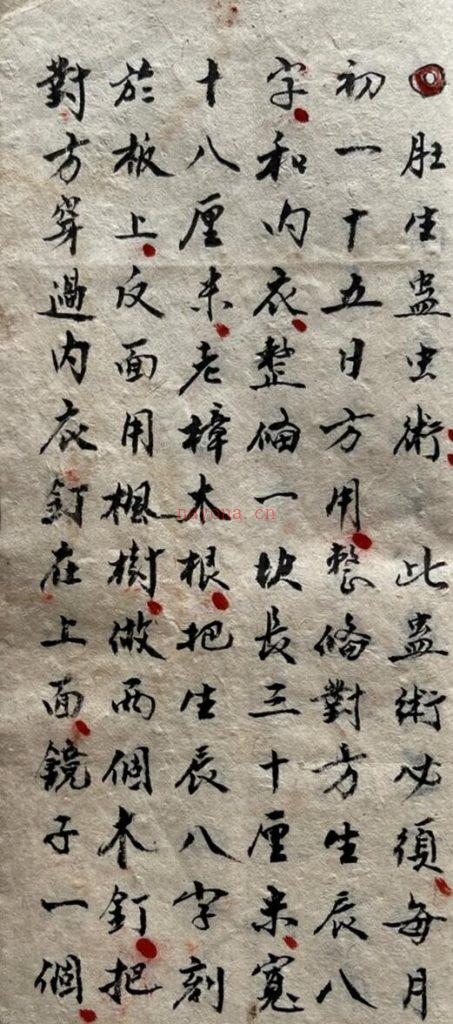 肚生蛊虫術 此蛊術必須每月
初一十五日方用整俻對方生辰八
字和内衣整俻一块長三十厘米寬
十八厘米老樟木根把生辰八字刻
於板上反面用楓樹做两個木釘把
對方穿過内衣釘在上面鏡子一個
nayona.cn